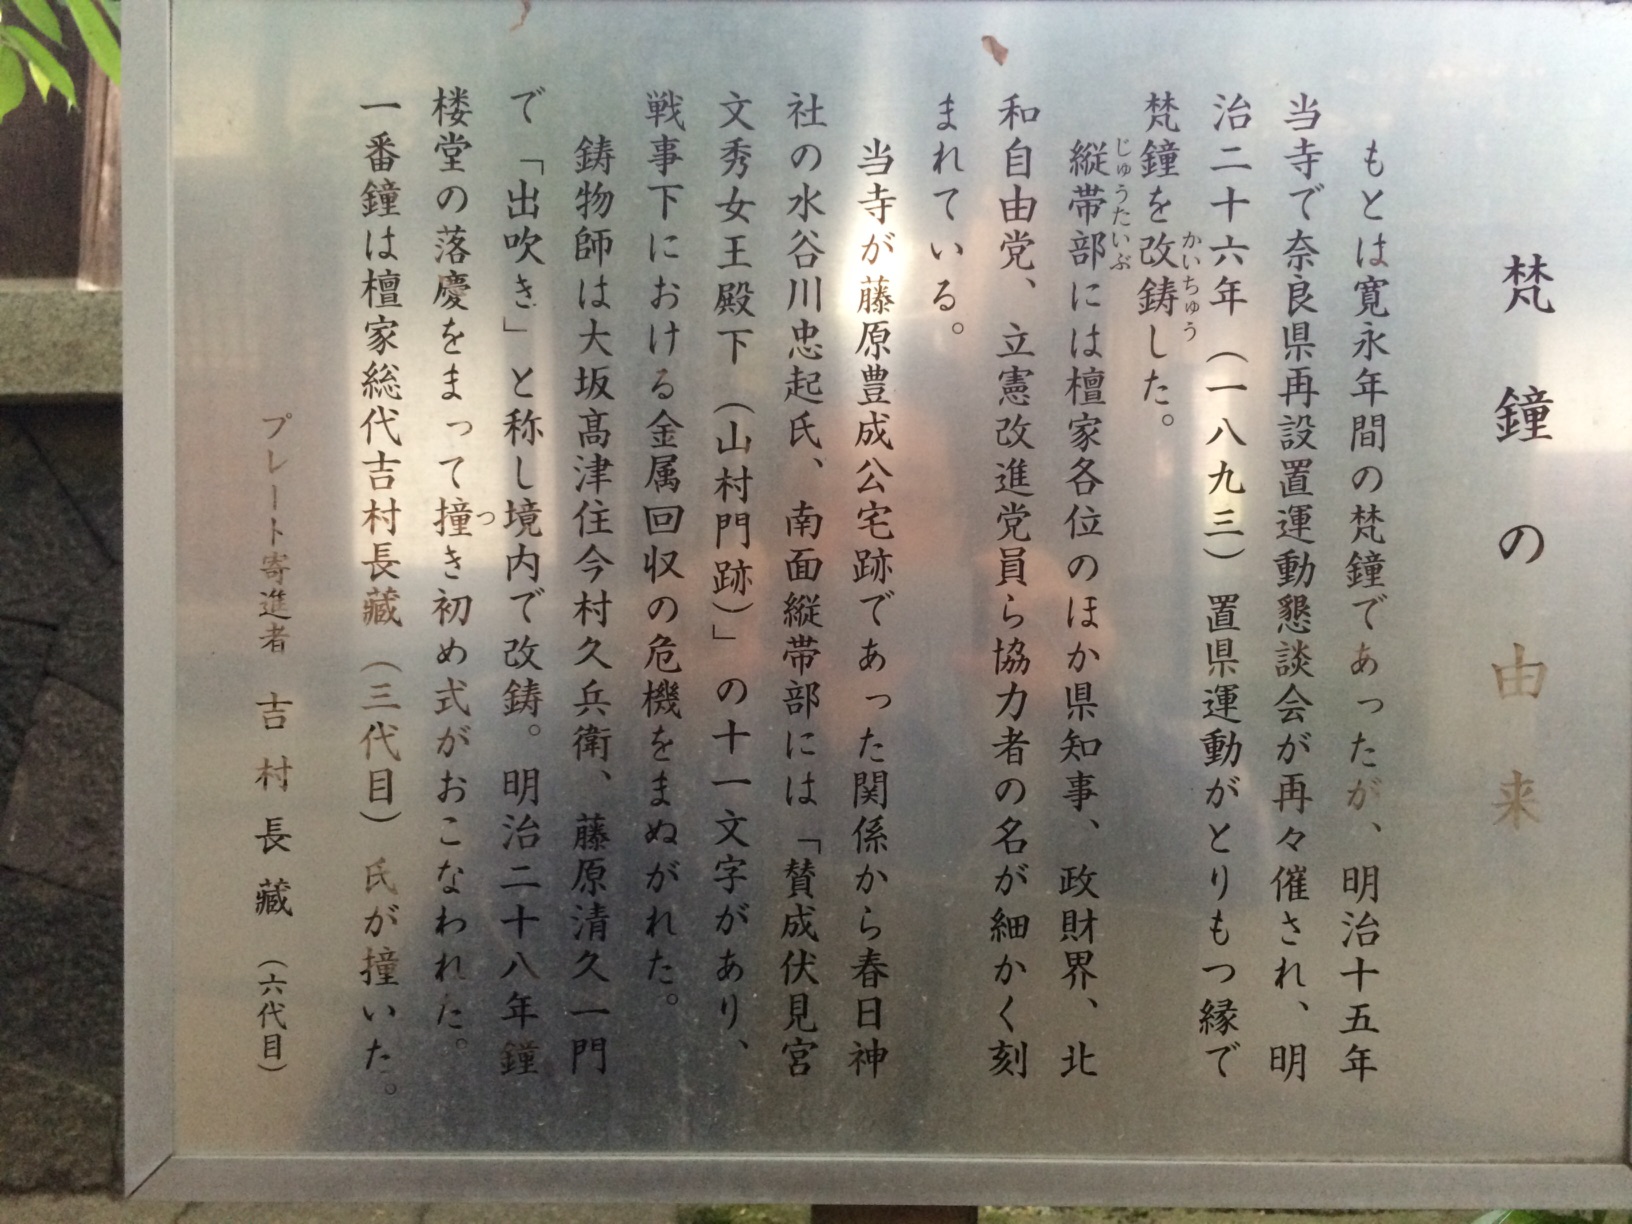 梵鐘の由来
もとは寛永年間の梵鐘であったが、明治十五年
当寺で奈良県再設置運動懇談会が再々催され、明
治二十六年（一八九三）置県運動がとりもつ縁で
梵鐘を改鋳かいちゅうした。
縦帯部じゅうたいぶには檀家各位のほか県知事、政財界、北
和自由党、立憲改進党員ら協力者の名が細かく刻
まれている。
当寺が藤原豊成公宅跡であった関係から春日神
社の水谷川忠起氏、南面縦帯部には「賛成伏見宮
文秀女王殿下（山村門跡）」の十一文字があり、
戦事下における金属回収の危機をまぬがれた。
鋳物師は大坂髙津住今村久兵衛、藤原清久一門
で「出吹き」と称し境内で改鋳。明治二十八年鐘
楼堂の落慶をまって撞つき初め式がおこなわれた。
一番鐘は檀家総代吉村長藏（三代目）氏が撞いた。
プレート寄進者 吉村長藏（六代目）